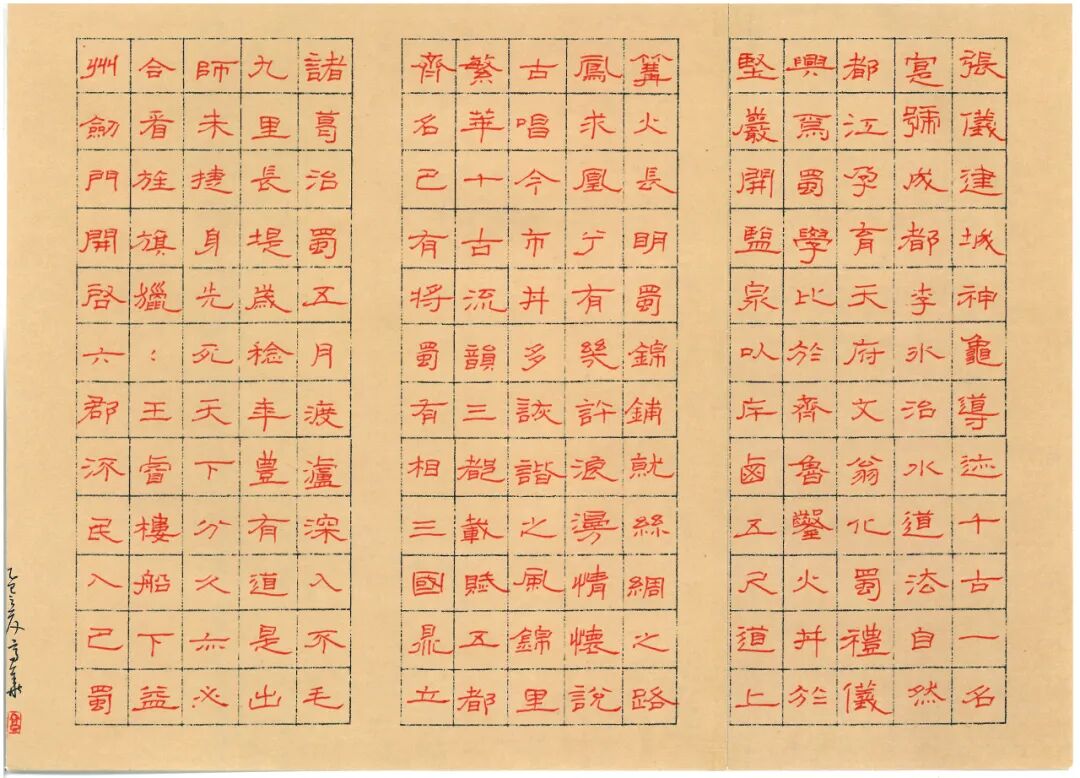 張儀建城神龜導迹千古一名
寔號成都李冰治水道法自然
都江孕育天府文翁化蜀禮儀
興焉蜀學比於齊魯鑿火井於
堅巖開鹽泉以斥鹵五尺道上
篝火長明蜀錦鋪就絲綢之路
鳳求凰兮有幾許浪漫情懷說
古唱今市井多詼諧之風錦里
繁華十古流韻三都載賦五都
齊名己有將蜀有相三國鼎立
諸葛治蜀五月渡瀘深入不毛
九里長堤歲稔年豊有道是出
師未捷身先死天下分久亦必
合看旌旗獵：王睿樓船下益
州劍門開啓六郡流民入巴蜀
乙巳之夏